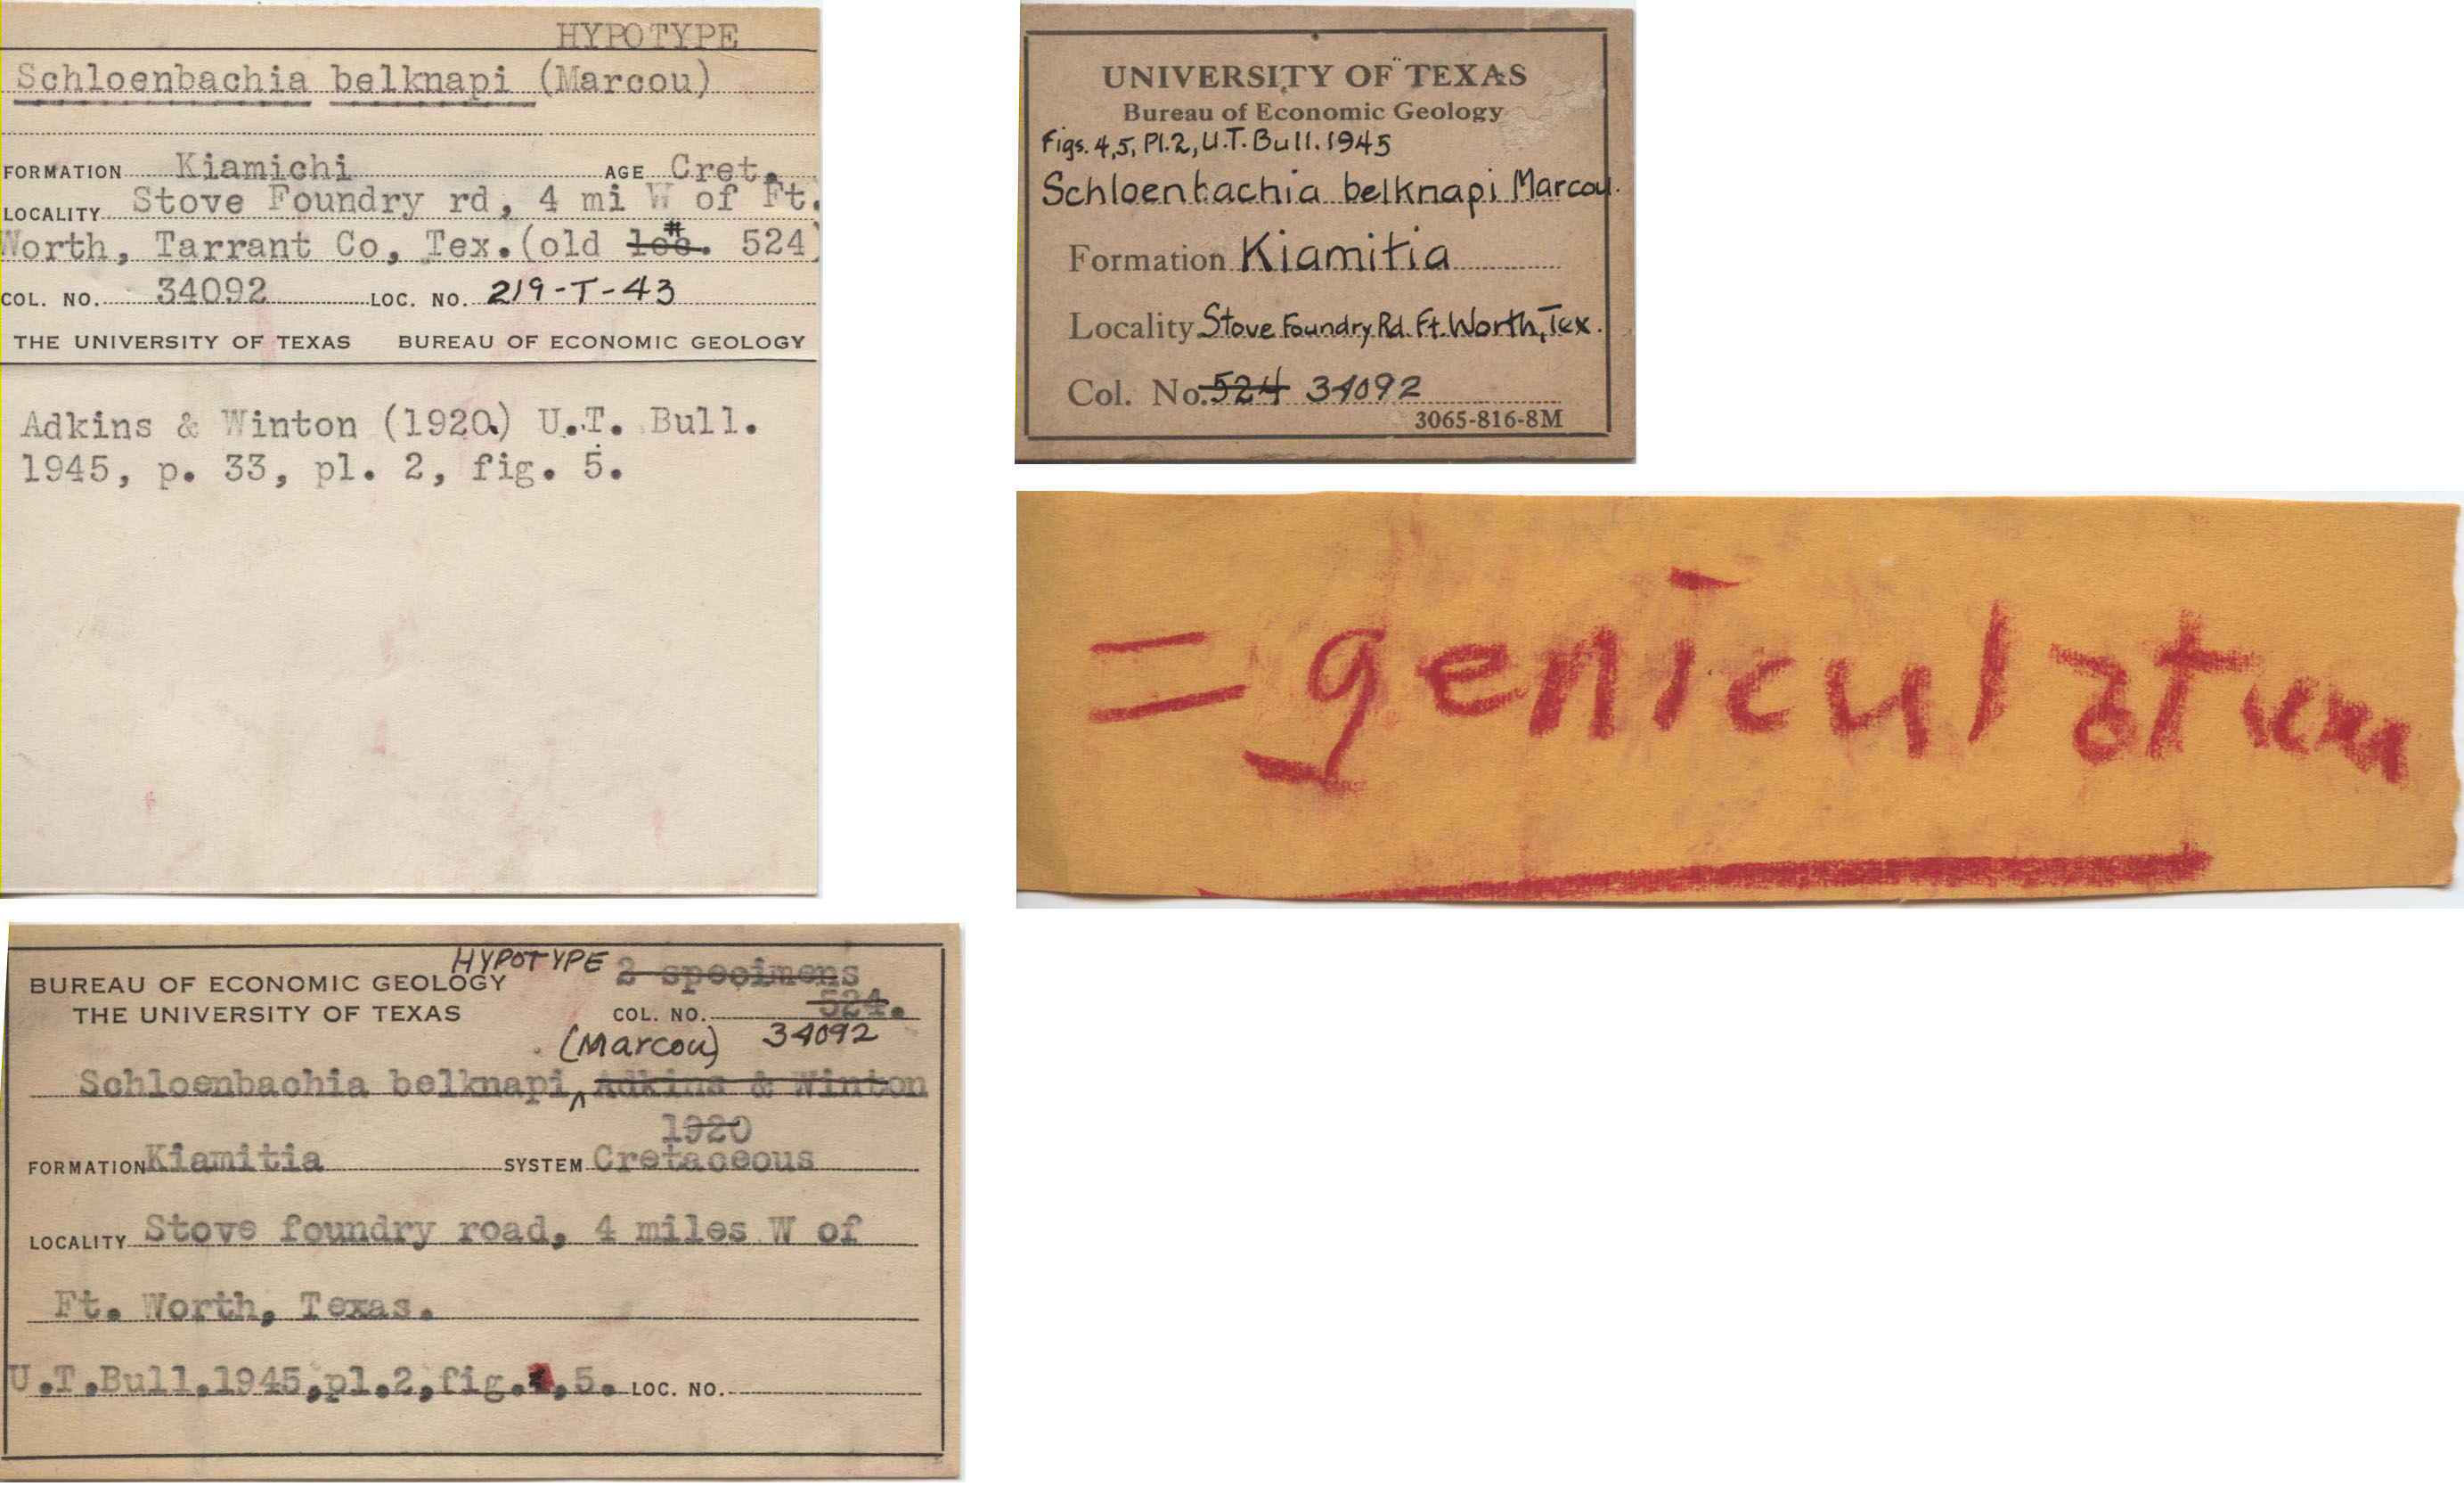 HYPOTYPE
Schloenbachia belknapi (Marcou)
FORMATION Kiamichi AGE Cret.
LOCALITY Stove Foundry rd, 4 mi W of Ft.
Worth, Tarrant Co, Tex. (old loc. # 524)
COL. NO. 34092 LOC. NO. 219-T-43
THE UNIVERSITY OF TEXAS BUREAU OF ECONOMIC GEOLOGY
Adkins & Winton (1920) U.T. Bull.
1945, p. 33, pl. 2, fig. 5.
UNIVERSITY OF TEXAS
Bureau of Economic Geology
Figs. 4,5, Pl.2, U.T. Bull. 1945
Schloenbachia belknapi Marcou.
Formation Kiamitia
Locality Stove Foundry Rd. Ft. Worth, Tex.
Col. No. 524 34092
3065-816-8M
= geniculatum
HYPOTYPE 2 specimens
BUREAU OF ECONOMIC GEOLOGY
THE UNIVERSITY OF TEXAS
COL. NO. 524.
(Marcou) 34092
Schloenbachia belknapi, Adkins & Winton
1920
FORMATION Kiamitia SYSTEM Cretaceous
LOCALITY Stove foundry road, 4 miles W of
Ft. Worth, Texas.
U.T.Bull.1945,pl.2,fig.4,5. LOC. NO.